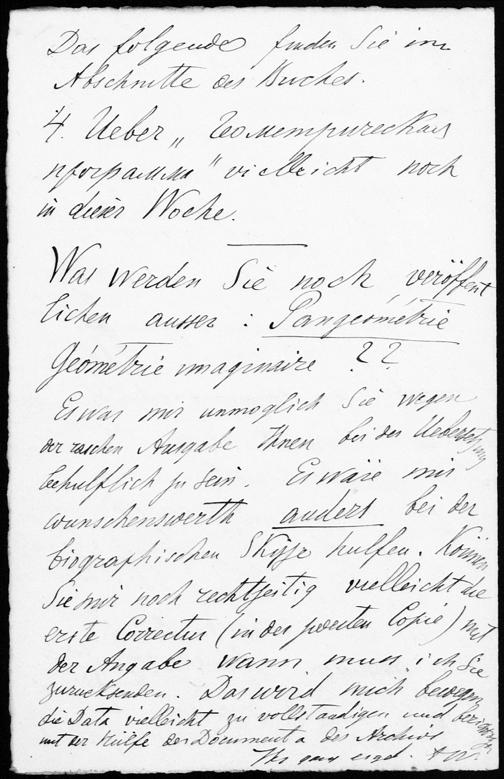 Das folgende finden Sie im
Abschnitte des Buches.
4. Ueber „Геометрическая
программа" vielleicht noch
in dieser Woche.
Was werden Sie noch veröffent
lichen ausser: Pangéométrie
Géométrie imaginaire ??
Es war mir unmoglich Sie wegen
der raschen Ausgabe Ihnen bei der Uebersetzung
behulflich zu sein. Es wäre mir
wunschenswerth anders bei der
biographischen Skyze hulfen. Können
Sie mir noch rechtzeitig vielleicht die
erste Correctur (in der zweiten Copie) mit
der Angabe wann muss ich Sie
zurucksenden. Das wird mich bewegen
die Data vielleicht zu vollstandigen und berichtigen
mit der Hülfe der Documenta des Archivs
Ihr ganz ergeb.